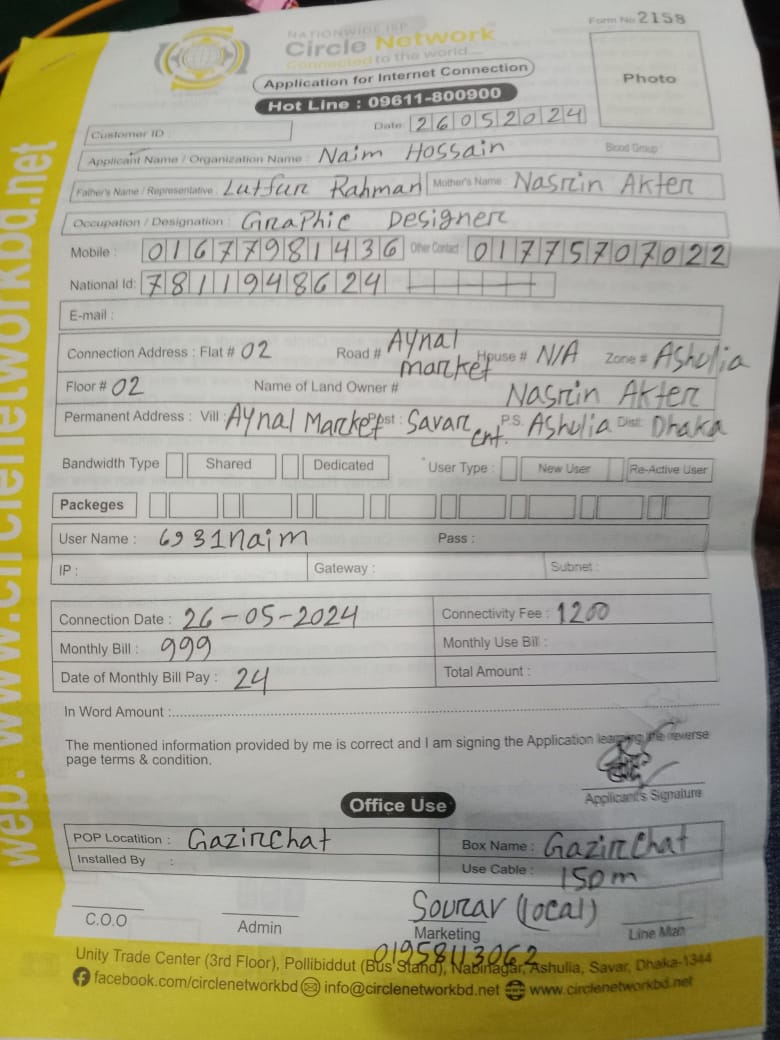 Form No 2158
NATIONWIDE ISP
Circle Network
Connected to the world....
Application for Internet Connection
Hot Line : 09611-800900
Photo
Date: 26052024
Customer ID :
Applicant Name / Organization Name : Naim Hossain Blood Group :
Father's Name / Representative : Lutfur Rahman Mother's Name : Nasrin Akter
Occupation / Designation : Graphic Designer
Mobile : 01677981436 Other Contact : 01775707022
National Id: 7811948624
E-mail :
Connection Address : Flat # 02 Road # Aynal market House # N/A Zone # Ashulia
Floor # 02 Name of Land Owner # Nasrin Akter
Permanent Address : Vill : Aynal Market Post : Savar cnt. P.S. Ashulia Dist: Dhaka
Bandwidth Type Shared Dedicated User Type : New User Re-Active User
Packeges
User Name : 6931naim Pass :
IP : Gateway : Subnet :
Connection Date : 26-05-2024 Connectivity Fee : 1200
Monthly Bill : 999 Monthly Use Bill :
Date of Monthly Bill Pay : 24 Total Amount :
In Word Amount :
The mentioned information provided by me is correct and I am signing the Application learning the reverse
page terms & condition.
Applicant's Signature
Office Use
POP Locatition : Gazirchat Box Name : Gazirchat
Installed By : Use Cable : 150m
Sourav (local)
C.O.O Admin Marketing Line Man
01958113062
Unity Trade Center (3rd Floor), Pollibiddut (Bus Stand), Nabinagar, Ashulia, Savar, Dhaka-1344
facebook.com/circlenetworkbd info@circlenetworkbd.net www.circlenetworkbd.net
web: www.circlenetworkbd.net